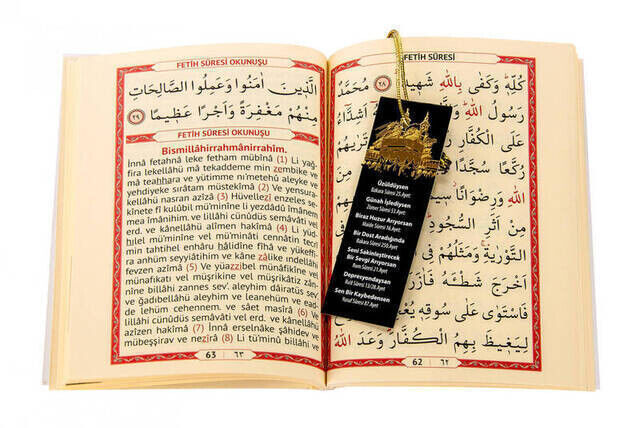 FETİH SÛRESİ OKUNUŞU
الَّذِينَ اٰمَنُوا وَعَمِلُوا الصَّالِحَاتِ
مِنْهُمْ مَغْفِرَةً وَاَجْرًا عَظِيمًا ٢٩
FETİH SÛRESİ OKUNUŞU
Bismillâhirrahmânirrahîm.
İnnâ fetahnâ leke fetham mübînâ (1) Li yağ-
fira lekellâhü mâ tekaddeme min zembike ve
mâ teahhara ve yütimme ni'metehû aleyke ve
yehdiyeke sırâtam müstekîmâ (2) Ve yensura-
kellâhü nasran azîzâ (3) Hüvellezî enzeles se-
kînete fî kulûbil mü'minîne li yezdâdû îmânem
mea îmânihim. ve lillâhi cünûdüs semâvâti vel
erd. ve kânellâhü alîmen hakîmâ (4) Li yüd-
hılel mü'minîne vel mü'minâti cennâtin tecrî
min tahtihel enhâru hâlidîne fîhâ ve yükeffi-
ra anhüm seyyiâtihim ve kâne zâlike ındellâhi
fevzen azîmâ (5) Ve yüazzibel münâfikîne vel
münafikati vel müşrikîne vel müşrikâtiz zân-
nîne billâhi zannes sev'. aleyhim dâiratüs sev'
ve ğadıbellâhü aleyhim ve leanehüm ve ead-
de lehüm cehennem. ve sâet masîrâ (6) Ve
lillâhi cünûdüs semâvâti vel erd. ve kânellâhü
azîzen hakîmâ (7) İnnâ erselnâke şâhidev ve
mübeşşirav ve nezîrâ (8) Li tü'minû billâhi ve
63 ٦٣
FETİH SÛRESİ
كُلِّهِ وَكَفٰى بِاللّٰهِ شَهِيدًا ٢٨ مُحَمَّدٌ
رَسُولُ اللّٰهِ
اَشِدَّاءُ
عَلَى الْكُفَّارِ
رُكَّعًا سُجَّدًا
اللّٰهِ وَرِضْوَانًا
مِنْ اَثَرِ السُّجُودِ
التَّوْرٰيةِ وَمَثَلُهُمْ فِي
اَخْرَجَ شَطْـَٔهُ فَاٰزَرَهُ
فَاسْتَوٰى عَلٰى سُوقِهِ
لِيَغِيظَ بِهِمُ الْكُفَّارَ وَعَدَ اللّٰهُ
62 ٦٢
Üzüldüysen
Bakara Sûresi 25.Ayet
Günah İşlediysen
Zümer Sûresi 53.Ayet
Biraz Huzur Arıyorsan
Maide Sûresi 16.Ayet
Bir Dost Aradığında
Bakara Sûresi 250.Ayet
Seni Sakinleştirecek
Bir Sevgi Arıyorsan
Rum Sûresi 21.Ayet
Depresyondaysan
Ra'd Sûresi 13/28.Ayet
Sen Bir Kaybedensen
Yusuf Sûresi 87.Ayet